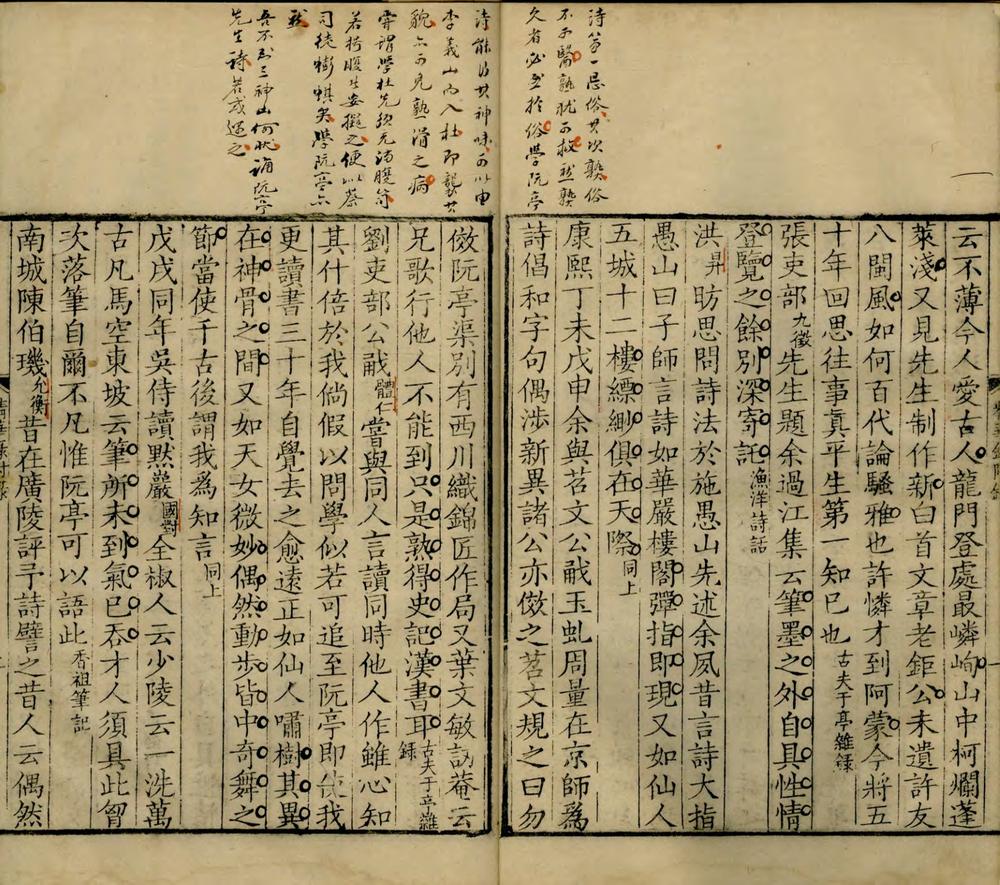 詩第一忌俗其次熟俗
不可醫熟猶可救然熟
久者必至於俗學阮亭
云不薄今人愛古人龍門登處最嶙峋山中柯爛蓬
萊淺又見先生制作新白首文章老鉅公未遺許友
八閩風如何百代論騷雅也許憐才到阿蒙今將五
十年回思往事真平生第一知已也古夫于亭雜錄
張吏部九徵先生題余過江集云筆墨之外自具性情
登覽之餘別深寄託漁洋詩話
洪昇昉思問詩法於施愚山先述余夙昔言詩大指
愚山曰子師言詩如華嚴樓閣彈指即現又如仙人
五城十二樓縹緲俱在天際同上
康熙丁未戊申余與苕文公㦷玉虬周量在京師爲
詩倡和字句偶涉新異諸公亦傚之苕文規之曰勿
詩能得其神味可以由
李義山而入杜即襲其
貌亦可免熟滑之病
嘗謂學杜先須充滿腹笥
若枵腹生妄擬之便以蔡
司徒蟛蜞矣學阮亭亦
然
吾不到三神山何狀誦阮亭
先生詩若或遇之
傚阮亭渠別有西川織錦匠作局又葉文敏訒菴云
兄歌行他人不能到只是熟得史記漢書耳古夫于亭雜錄
劉吏部公㦷體仁嘗與同人言讀同時他人作雖心知
其什倍於我倘假以問學似若可追至阮亭即使我
更讀書三十年自覺去之愈遠正如仙人嘯樹其異
在神骨之間又如天女微妙偶然動步皆中奇舞之
節當使千古後謂我爲知言同上
戊戌同年吳侍讀默巖國對全椒人云少陵云一洗萬
古凡馬空東坡云筆所未到氣已吞才人須具此胷
次落筆自爾不凡惟阮亭可以語此香祖筆記
南城陳伯璣允衡昔在廣陵評予詩譬之昔人云偶然